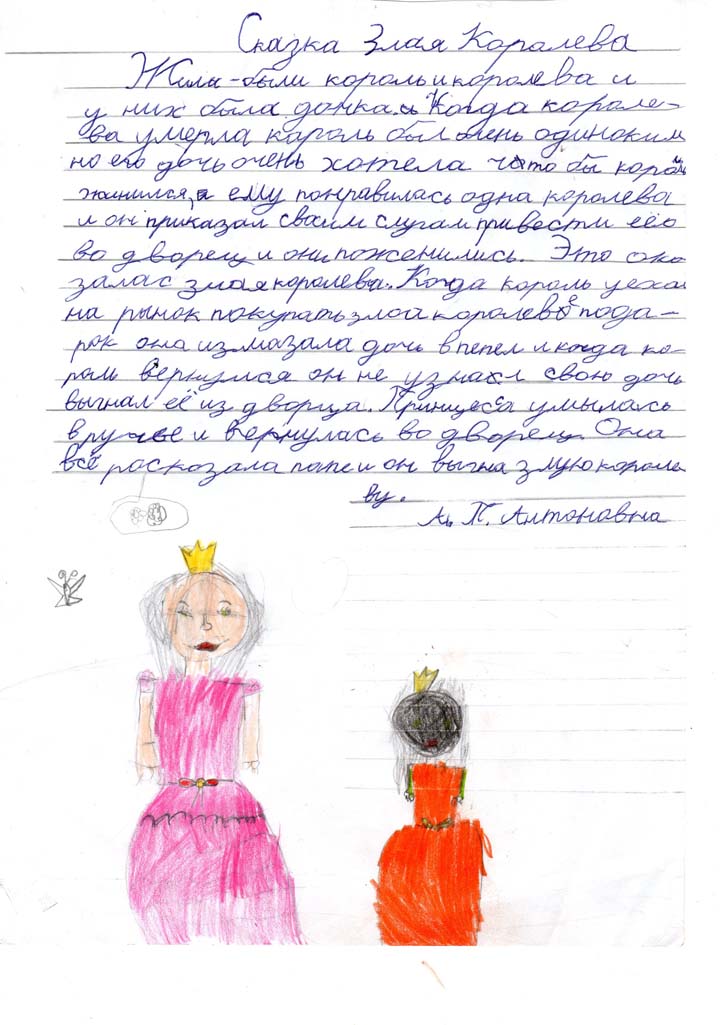 Сказка Злая Каралева
Жили-были король и королева и
у них была дочка. Когда короле-
ва умерла кароль был очень одиноким
но его дочь очень хотела что бы король
женился, а ему понравилась одна королева
и он приказал своим слугам привести её
во дворец и они поженились. Это ока
залас злая королева. Когда король уехал
на рынок покупать злоа королеве пода-
рок она измазала дочь в пепел и когда ко-
роль вернулся он не узнал свою дочь
выгнал её из дворца. Принцеса умылась
в ручье и вернулась во дворец. Она
всё расказала папе и он выгна злую короле
ву.
А. П. Антонавна